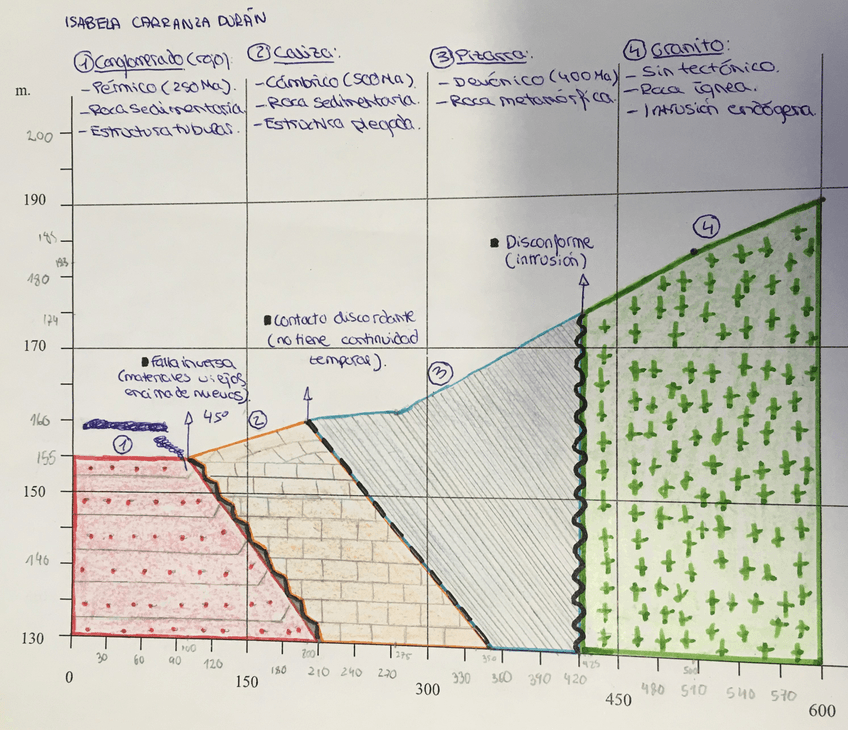 ISABELA CARRANZA DURÁN
① Conglomerado (rojo):
- Pérmico (250 Ma).
- Roca sedimentaria.
- Estructura tubular.
② Caliza:
- Cámbrico (500 Ma).
- Roca sedimentaria.
- Estructura plegada.
③ Pizarra:
- Devónico (400 Ma)
- Roca metamórfica.
④ Granito:
- Sin tectónico.
- Roca ígnea.
- Intrusión endógena.
m.
200
190
185
183
180
174
170
160
155
150
140
130
Disconforme
(intrusión)
④
Contacto discordante
(no tiene continuidad
temporal).
③
Falla inversa
(materiales viejos
encima de nuevos).
45º
②
①
0
30
60
90
100
120
150
180
200
210
240
270
275
300
330
350
360
390
420
425
450
480
500
510
540
570
600